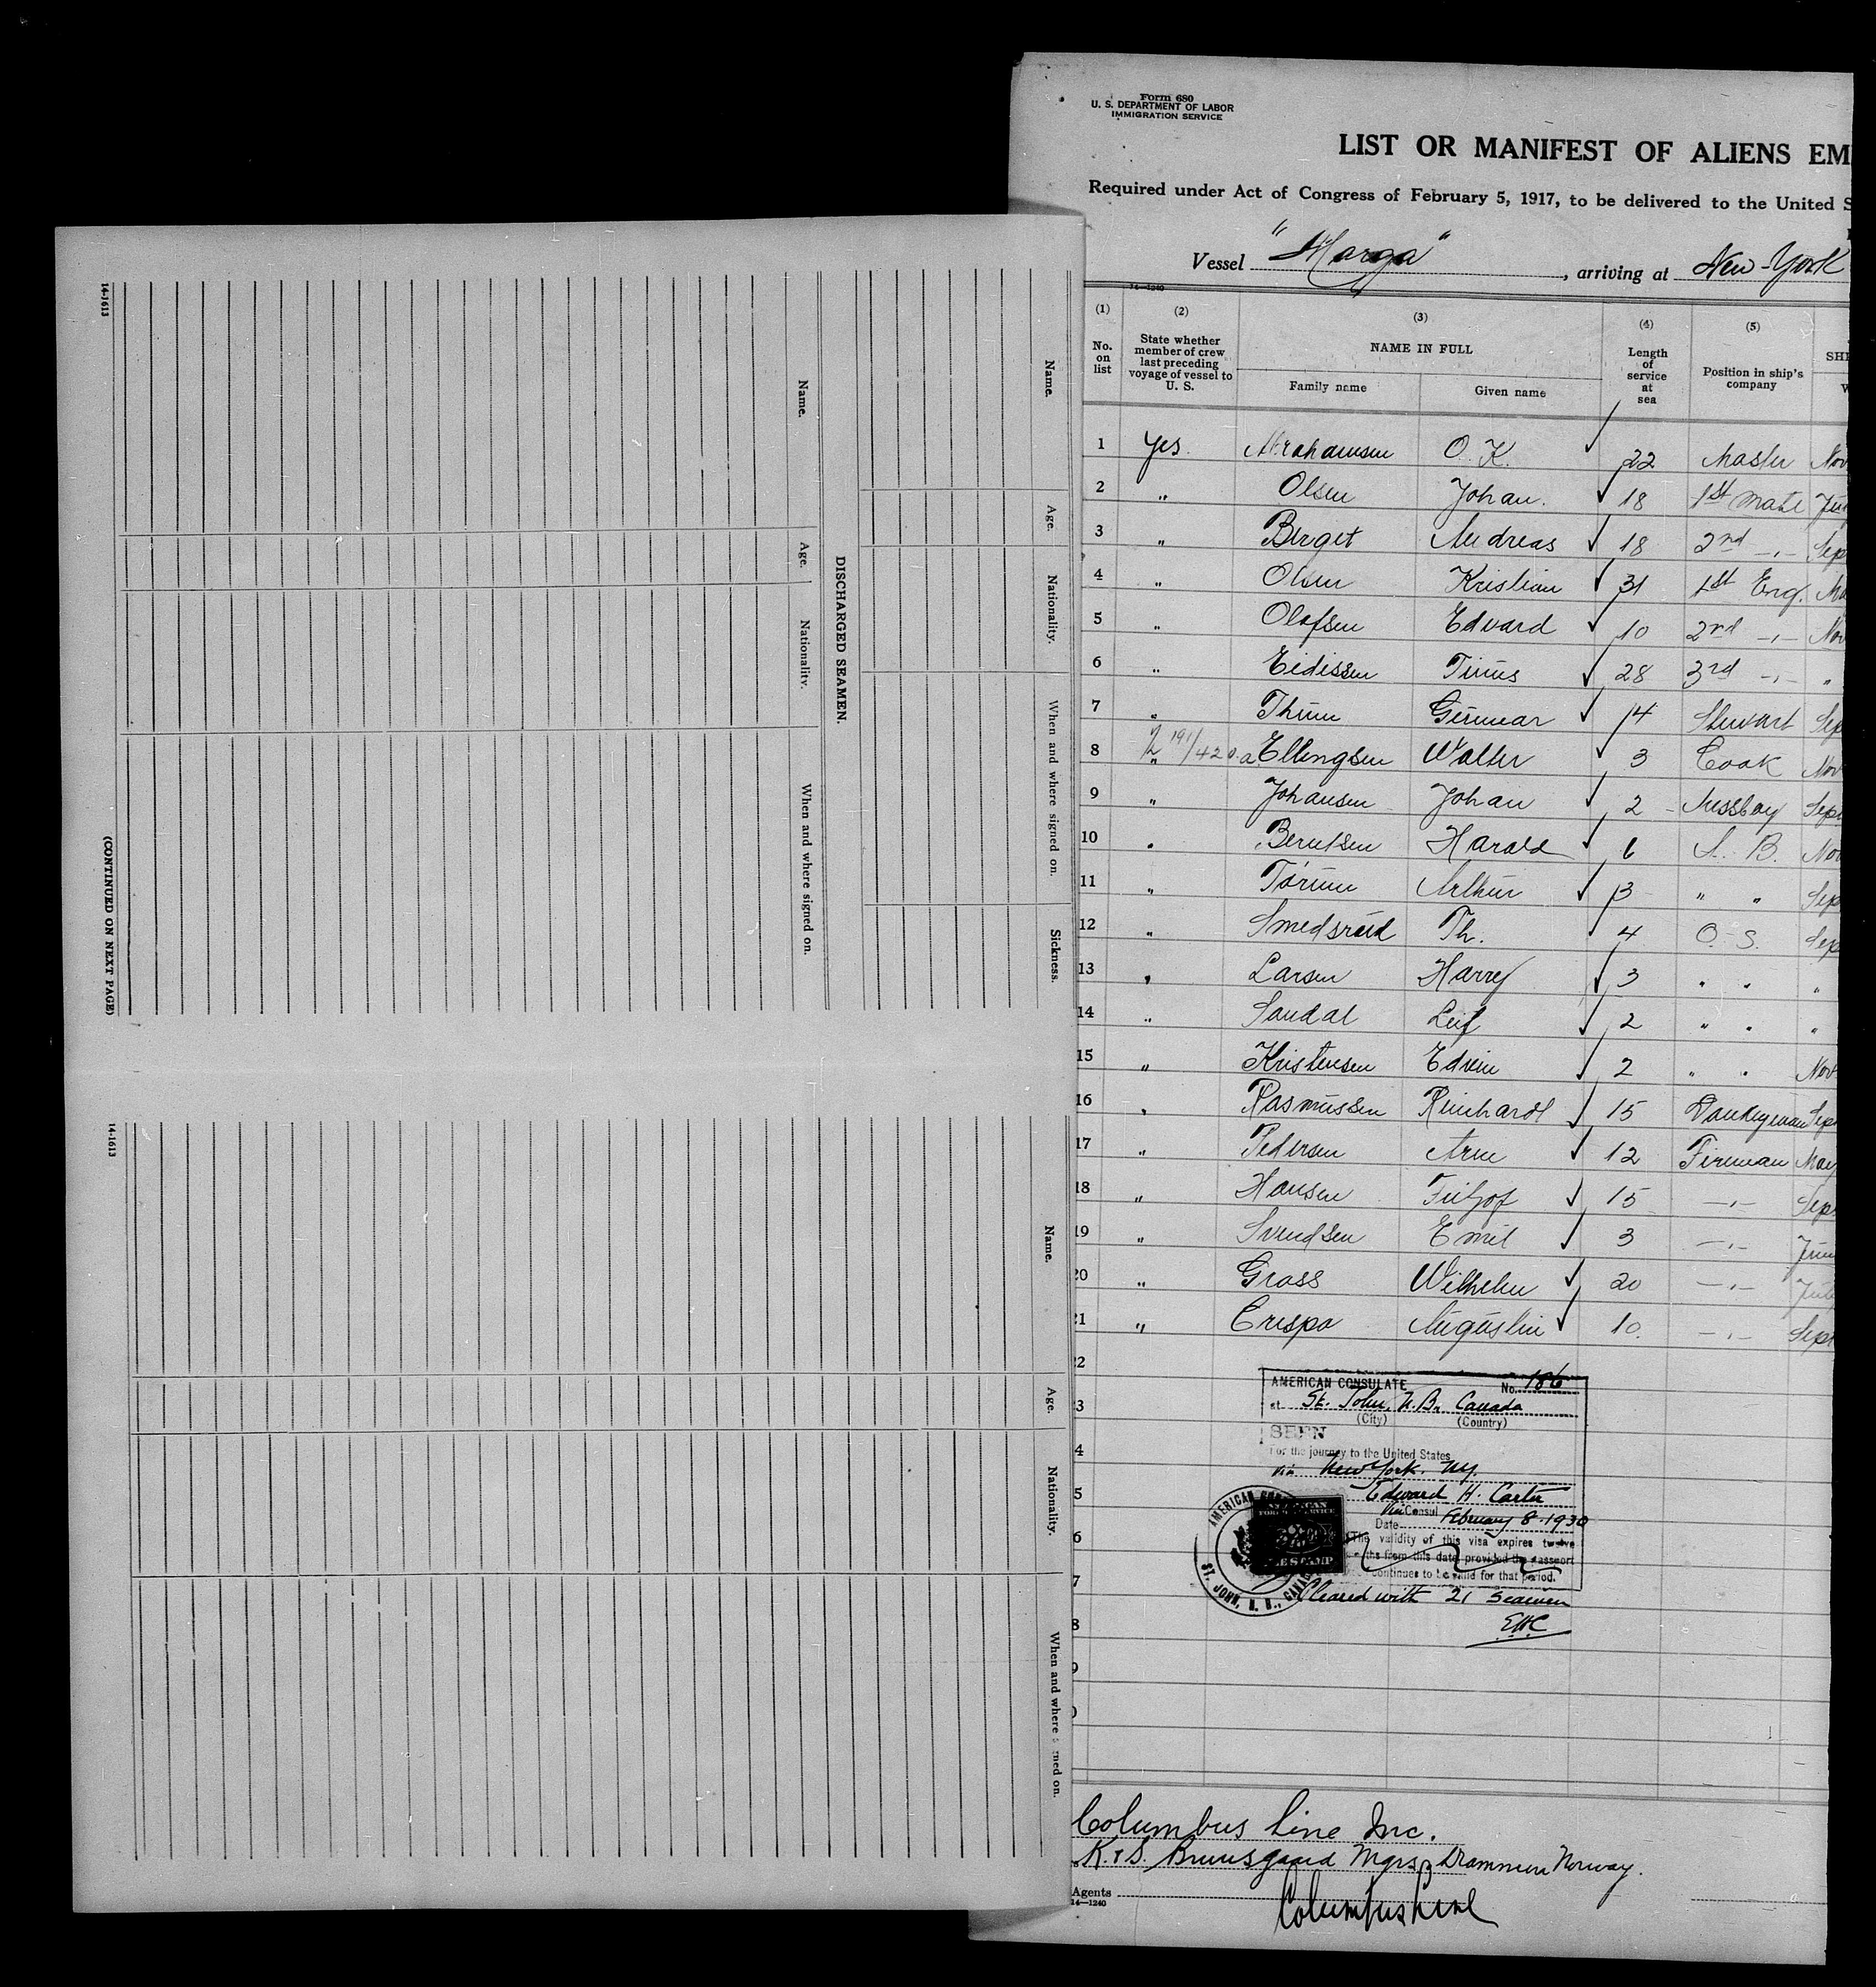 Form 680
U. S. DEPARTMENT OF LABOR
IMMIGRATION SERVICE
LIST OR MANIFEST OF ALIENS EM
Required under Act of Congress of February 5, 1917, to be delivered to the United S
Vessel "Marga", arriving at New-York
14—1240
(1) (2) (3) (4) (5)
No. on list
State whether member of crew last preceding voyage of vessel to U. S.
NAME IN FULL
Family name Given name
Length of service at sea
Position in ship's company
SHI
W
1 Yes Abrahamsen O. K. 22 Master Nov
2 " Olsen Johan. 18 1st mate
3 " Berget Andreas 18 2nd -"- Sep
4 " Olsen Kristian 31 1st Eng. Ma
5 " Olafsen Edvard 10 2nd -"- Nov
6 " Eidissen 28 3rd -"- "
7 " Gunnar 14 Stewart Sep
8 " 191/420 Ellingsen Walter 3 Cook Nov
9 " Johansen Johan 2 Messboy Sep
10 " Berntsen Harald 6 A. B. Nov
11 " Arthur 3 " " Sep
12 " Smedsrud Th. 4 O. S. Sep
13 " Larsen Harry 3 " " "
14 " Sandal Leif 2 " " "
15 " Kristensen Edvin 2 " " Nov
16 " Rasmussen Reinhardt 15 Donkeyman Sep
17 " Pedersen Arne 12 Fireman May
18 " Hansen Fritjof 15 -"- Sep
19 " Svendsen Emil 3 -"- Jun
20 " Gross Wilhelm 20 -"- July
21 " Crespo Augustin 10 -"- Sept
22
3
4
5
6
7
8
9
0
AMERICAN CONSULATE No. 186
at St. John, N.B. Canada
(City) (Country)
SEEN
For the journey to the United States
via New York. N.Y.
Edward H. Carter
Vice Consul
Date February 8-1930
The validity of this visa expires twelve
ths from this date, provided the passport
continues to be valid for that period.
AMERICAN
ST. JOHN, N. B., CANA
Cleared with 21 seamen
EHC
Columbus Line Inc.
K. & S. Bruusgaard Mgrs, Drammen Norway.
Agents
14—1240
Columbus Line
Name. Age. Nationality. When and where signed on. Sickness.
DISCHARGED SEAMEN.
Name. Age. Nationality. When and where signed on.
14-1613 (CONTINUED ON NEXT PAGE)
Name. Age. Nationality. When and where signed on.
14-1613